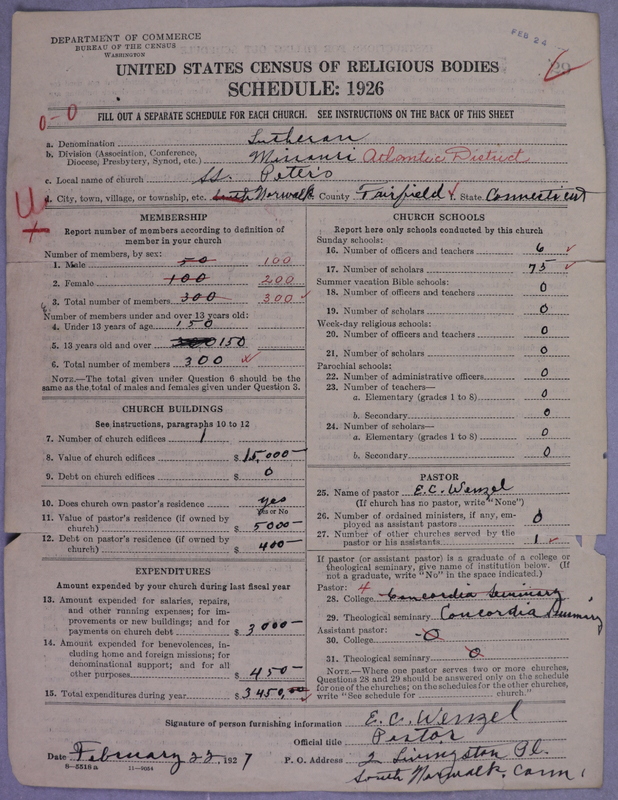 DEPARTMENT OF COMMERCE
BUREAU OF THE CENSUS
WASHINGTON
FEB 24
29
UNITED STATES CENSUS OF RELIGIOUS BODIES
SCHEDULE: 1926
0-0
FILL OUT A SEPARATE SCHEDULE FOR EACH CHURCH. SEE INSTRUCTIONS ON THE BACK OF THIS SHEET
a. Denomination Lutheran
b. Division (Association, Conference, Diocese, Presbytery, Synod, etc.) Missouri Atlantic District
c. Local name of church St. Peter's
d. City, town, village, or township, etc. South Norwalk e. County Fairfield f. State Connecticut
U
MEMBERSHIP
Report number of members according to definition of
member in your church
Number of members, by sex:
1. Male 50 100
2. Female 100 200
3. Total number of members 300 300
Number of members under and over 13 years old:
4. Under 13 years of age 150
5. 13 years old and over 150
6. Total number of members 300
NOTE.—The total given under Question 6 should be the
same as the total of males and females given under Question 3.
CHURCH BUILDINGS
See instructions, paragraphs 10 to 12
7. Number of church edifices 1
8. Value of church edifices $ 15,000—
9. Debt on church edifices $ 0
10. Does church own pastor's residence yes
Yes or No
11. Value of pastor's residence (if owned by
church) $ 5000—
12. Debt on pastor's residence (if owned by
church) $ 400—
EXPENDITURES
Amount expended by your church during last fiscal year
13. Amount expended for salaries, repairs,
and other running expenses; for im-
provements or new buildings; and for
payments on church debt $ 3000—
14. Amount expended for benevolences, in-
cluding home and foreign missions; for
denominational support; and for all
other purposes $ 450—
15. Total expenditures during year $ 3450,00
CHURCH SCHOOLS
Report here only schools conducted by this church
Sunday schools:
16. Number of officers and teachers 6
17. Number of scholars 75
Summer vacation Bible schools:
18. Number of officers and teachers 0
19. Number of scholars 0
Week-day religious schools:
20. Number of officers and teachers 0
21. Number of scholars 0
Parochial schools:
22. Number of administrative officers 0
23. Number of teachers—
a. Elementary (grades 1 to 8) 0
b. Secondary 0
24. Number of scholars—
a. Elementary (grades 1 to 8) 0
b. Secondary 0
PASTOR
25. Name of pastor E.C. Wenzel
(If church has no pastor, write "None")
26. Number of ordained ministers, if any, em-
ployed as assistant pastors 0
27. Number of other churches served by the
pastor or his assistants 1
If pastor (or assistant pastor) is a graduate of a college or
theological seminary, give name of institution below. (If
not a graduate, write "No" in the space indicated.)
Pastor: 4
28. College Concordia Seminary
29. Theological seminary Concordia Seminary
Assistant pastor:
30. College 0
31. Theological seminary 0
NOTE.—Where one pastor serves two or more churches,
Questions 28 and 29 should be answered only on the schedule
for one of the churches; on the schedules for the other churches,
write "See schedule for church."
Signature of person furnishing information E. C. Wenzel
Official title Pastor
Date February 22, 1927 P. O. Address 2 Livingston Pl.
South Norwalk, Conn.
8-5518 a 11-9034